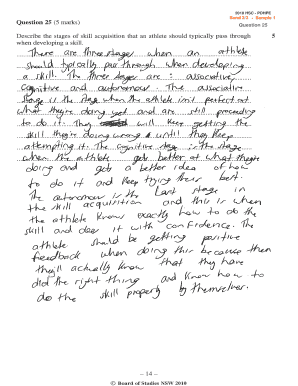 2010 HSC - PDHPE
Band 2/3 - Sample 1
Question 25
Question 25 (5 marks)
Describe the stages of skill acquisition that an athlete should typically pass through 5
when developing a skill.
There are three stages when an athlete
should typically pass through when developing
a skill. The three stages are: associative,
cognitive and autonomous. The associative
stage is the stage when the athlete isn't perfect at
what they're doing yet and are still proceeding
to do it. They will keep getting the
skill they're doing wrong until they keep
attempting it. The cognitive stage is the stage
when the athlete gets better at what they're
doing and gets a better idea of how
to do it and keep trying their best.
The autonomous is the last stage in
the skill acquisition and this is when
the athlete know exactly how to do the
skill and does it with confidence. The
athlete should be getting positive
feedback when doing this because then
they'll actually know that they have
did the right thing and know how to
do the skill properly by themselves.
– 14 –
© Board of Studies NSW 2010